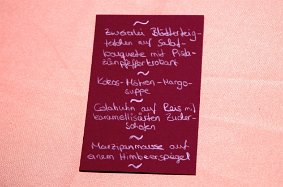 ~
Zweierlei Blätterteig-
törtchen auf Salat-
bouquete mit Pista-
~
Kokos-Möhren-Mango-
suppe
~
auf Reis mit
karamellisierten Zucker-
schoten
~
Marzipanmousse auf
einem Himbeerspiegel
~